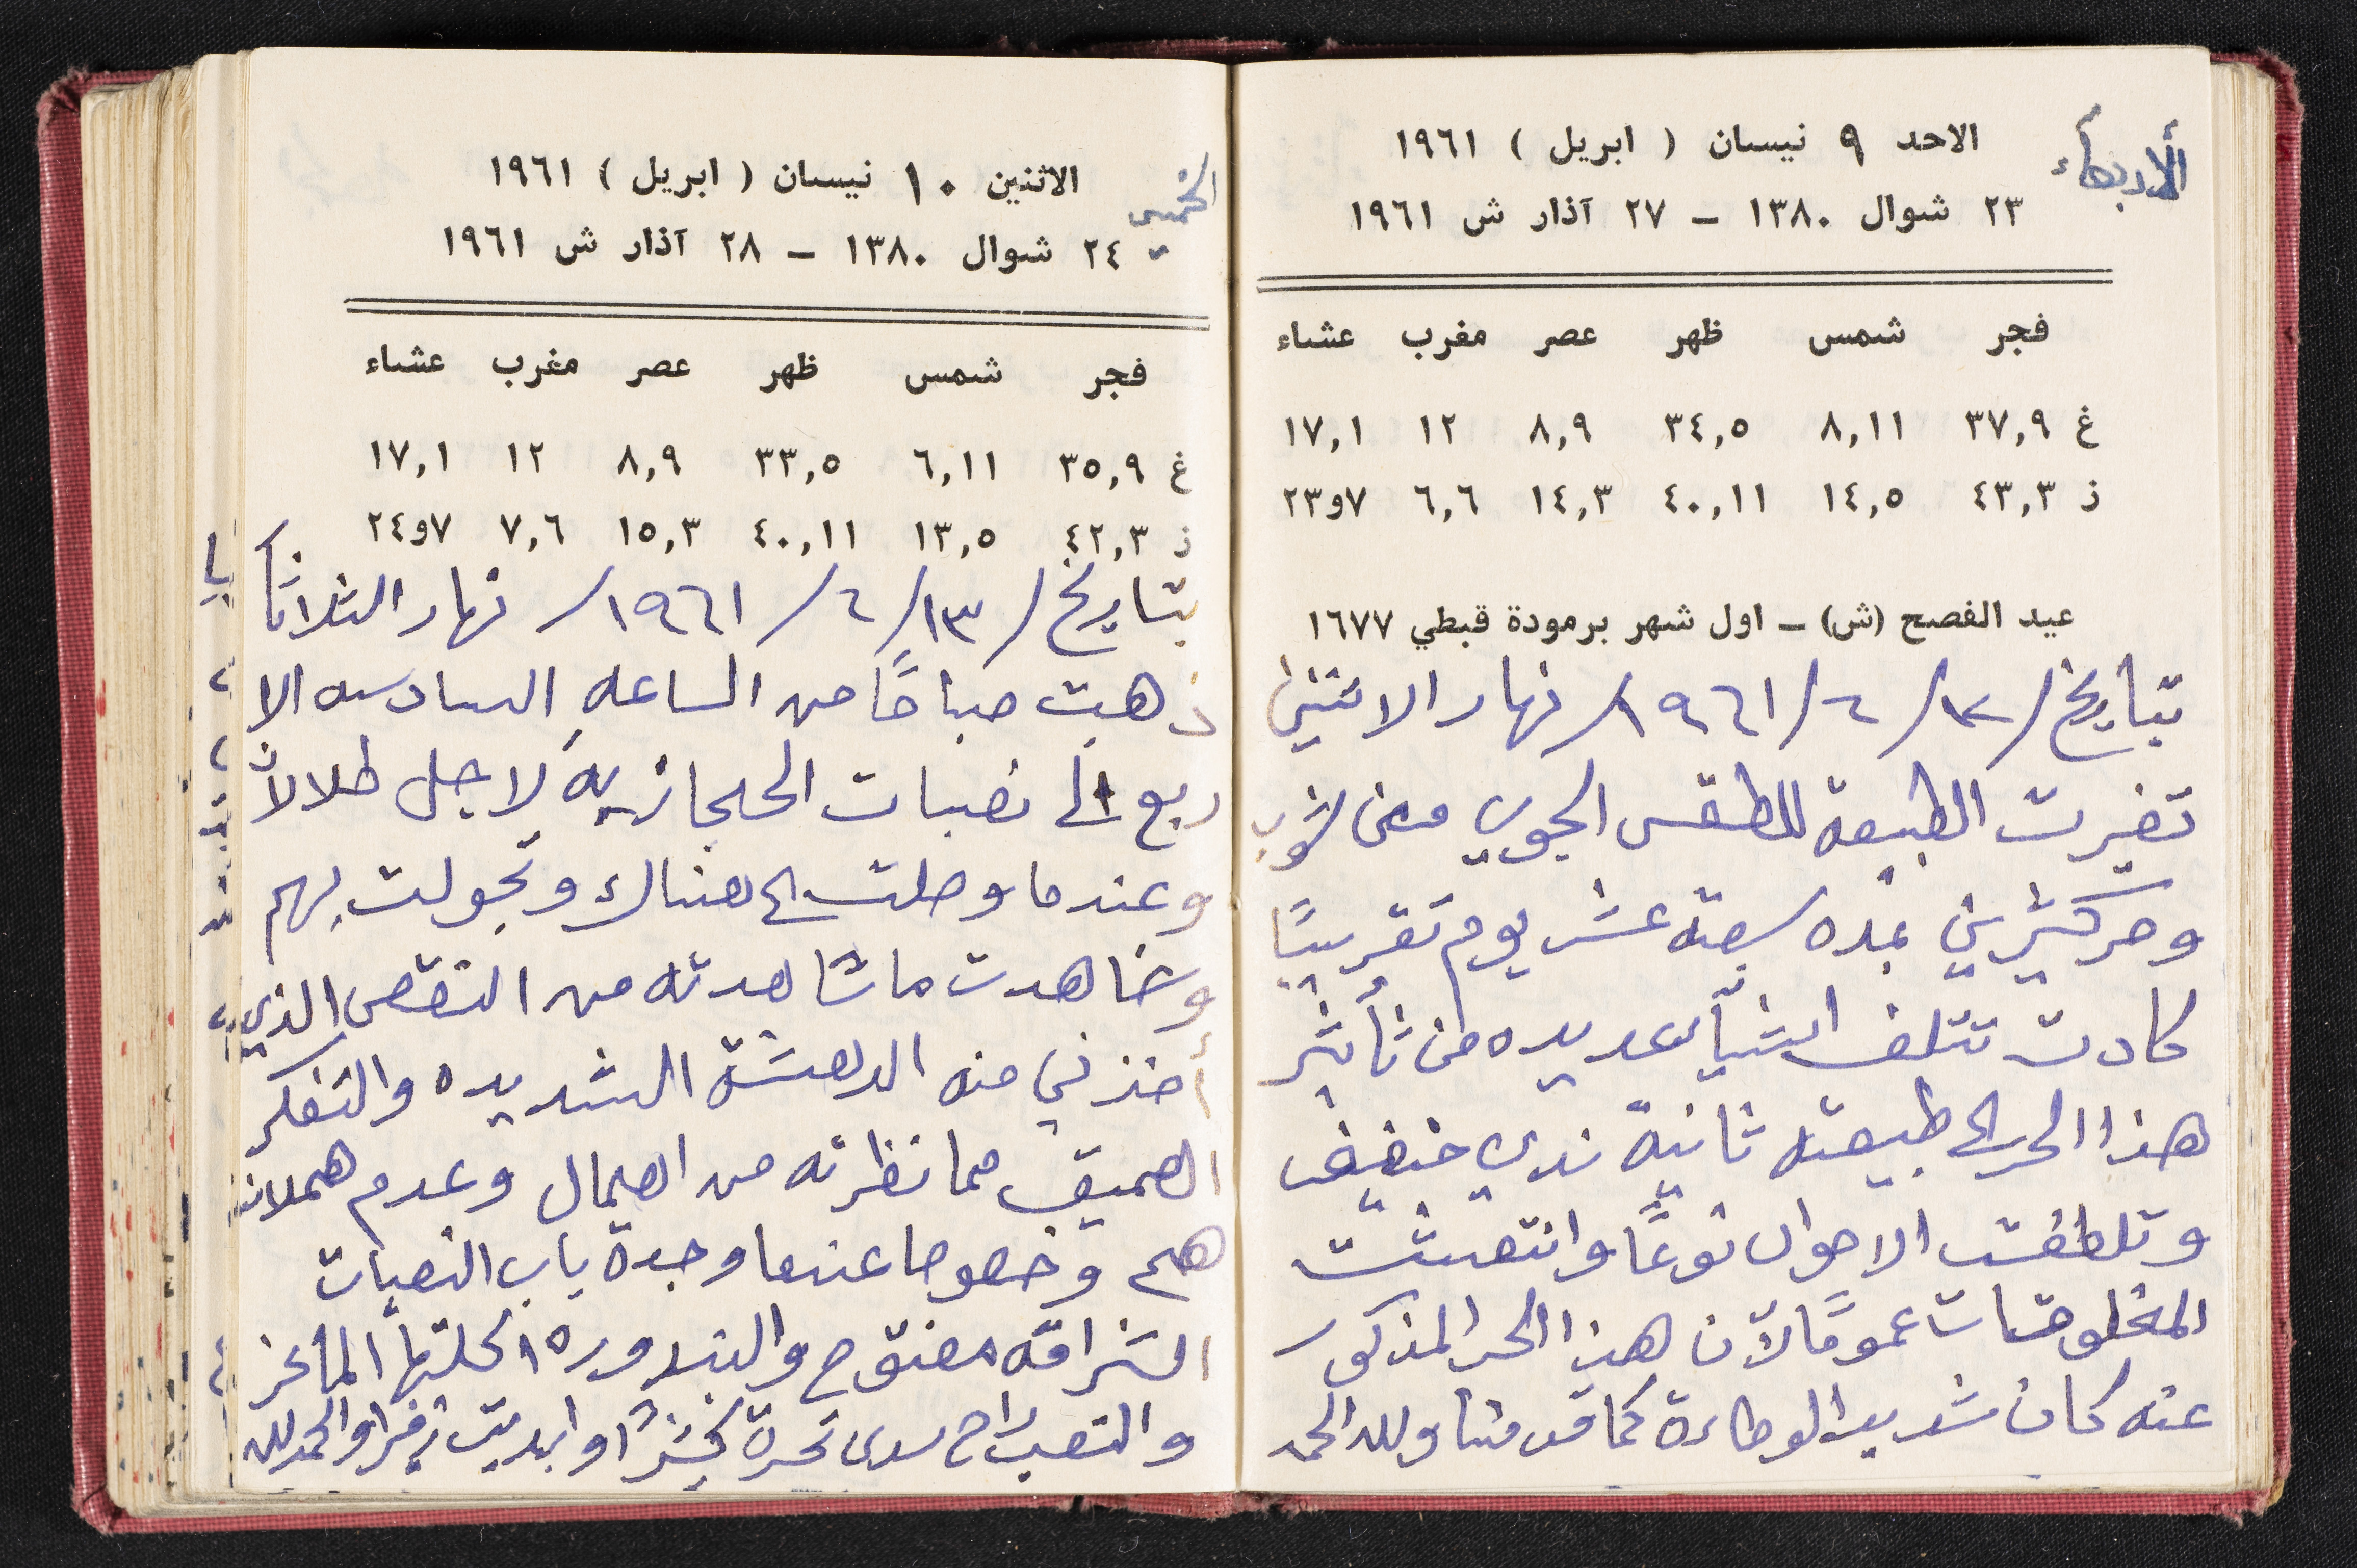 الأربعاء
الاحد ٩ نيسان ( ابريل ) ١٩٦١
٢٣ شوال ١٣٨٠ – ٢٧ آذار ش ١٩٦١
فجر شمس ظهر عصر مغرب عشاء
غ ٣٧,٩ ٨,١١ ٣٤,٥ ٨,٩ ١٢ ١٧,١
ز ٤٣,٣ ١٤,٥ ٤٠,١١ ١٤,٣ ٦,٦ ٧و٢٣
عيد الفصح (ش) – اول شهر برمودة قبطي ١٦٧٧
بتأريخ / ١٢ / ٦ / ١٩٦١ / نهار الاثنين
تغيرت الطبيعة للطقس الجوي من شوب
وحر كثيرين بمده سبعة عشر يوم تقريبًا
كادت تتلف اشيآء عديده من تأثير
هذا الحر الى طبيعة ثانية ندي خفيف
وتلطفت الاحوال نوعًا وانتعشت
المخلوقات عمومًا لأن هذا الحر المذكور
عنه كان شديد الوطاءة كما قدمنا ولله الحمد
الخميس
الاثنين ١٠ نيسان ( ابريل ) ١٩٦١
٢٤ شوال ١٣٨٠ – ٢٨ آذار ش ١٩٦١
فجر شمس ظهر عصر مغرب عشاء
غ ٣٥,٩ ٦,١١ ٣٣,٥ ٨,٩ ١٢ ١٧,١
ز ٤٢,٣ ١٣,٥ ٤٠,١١ ١٥,٣ ٧,٦ ٧و٢٤
بتاريخ / ١٣ / ٦ / ١٩٦١ / نهار الثلاثا
ذهبت صباحًا من الساعه السادسه الا
ربع الى نصبات الحلجازية لاجل طلالاً
وعندما وصلت الى هناك وتجولت بهم
وشاهدت ما شاهدته من النقص الذي
أخذني منه الدهشة الشديده والتفكر
العميق مما نظرته من اهمال وعدم
هم وخصوصا عندما وجدة باب النصبات
الشراقه مفتوح والبندوره اكلتها الماعز
والتعب راح سدى تحرة كثيرًا وابديت زفيرا والحمد لله